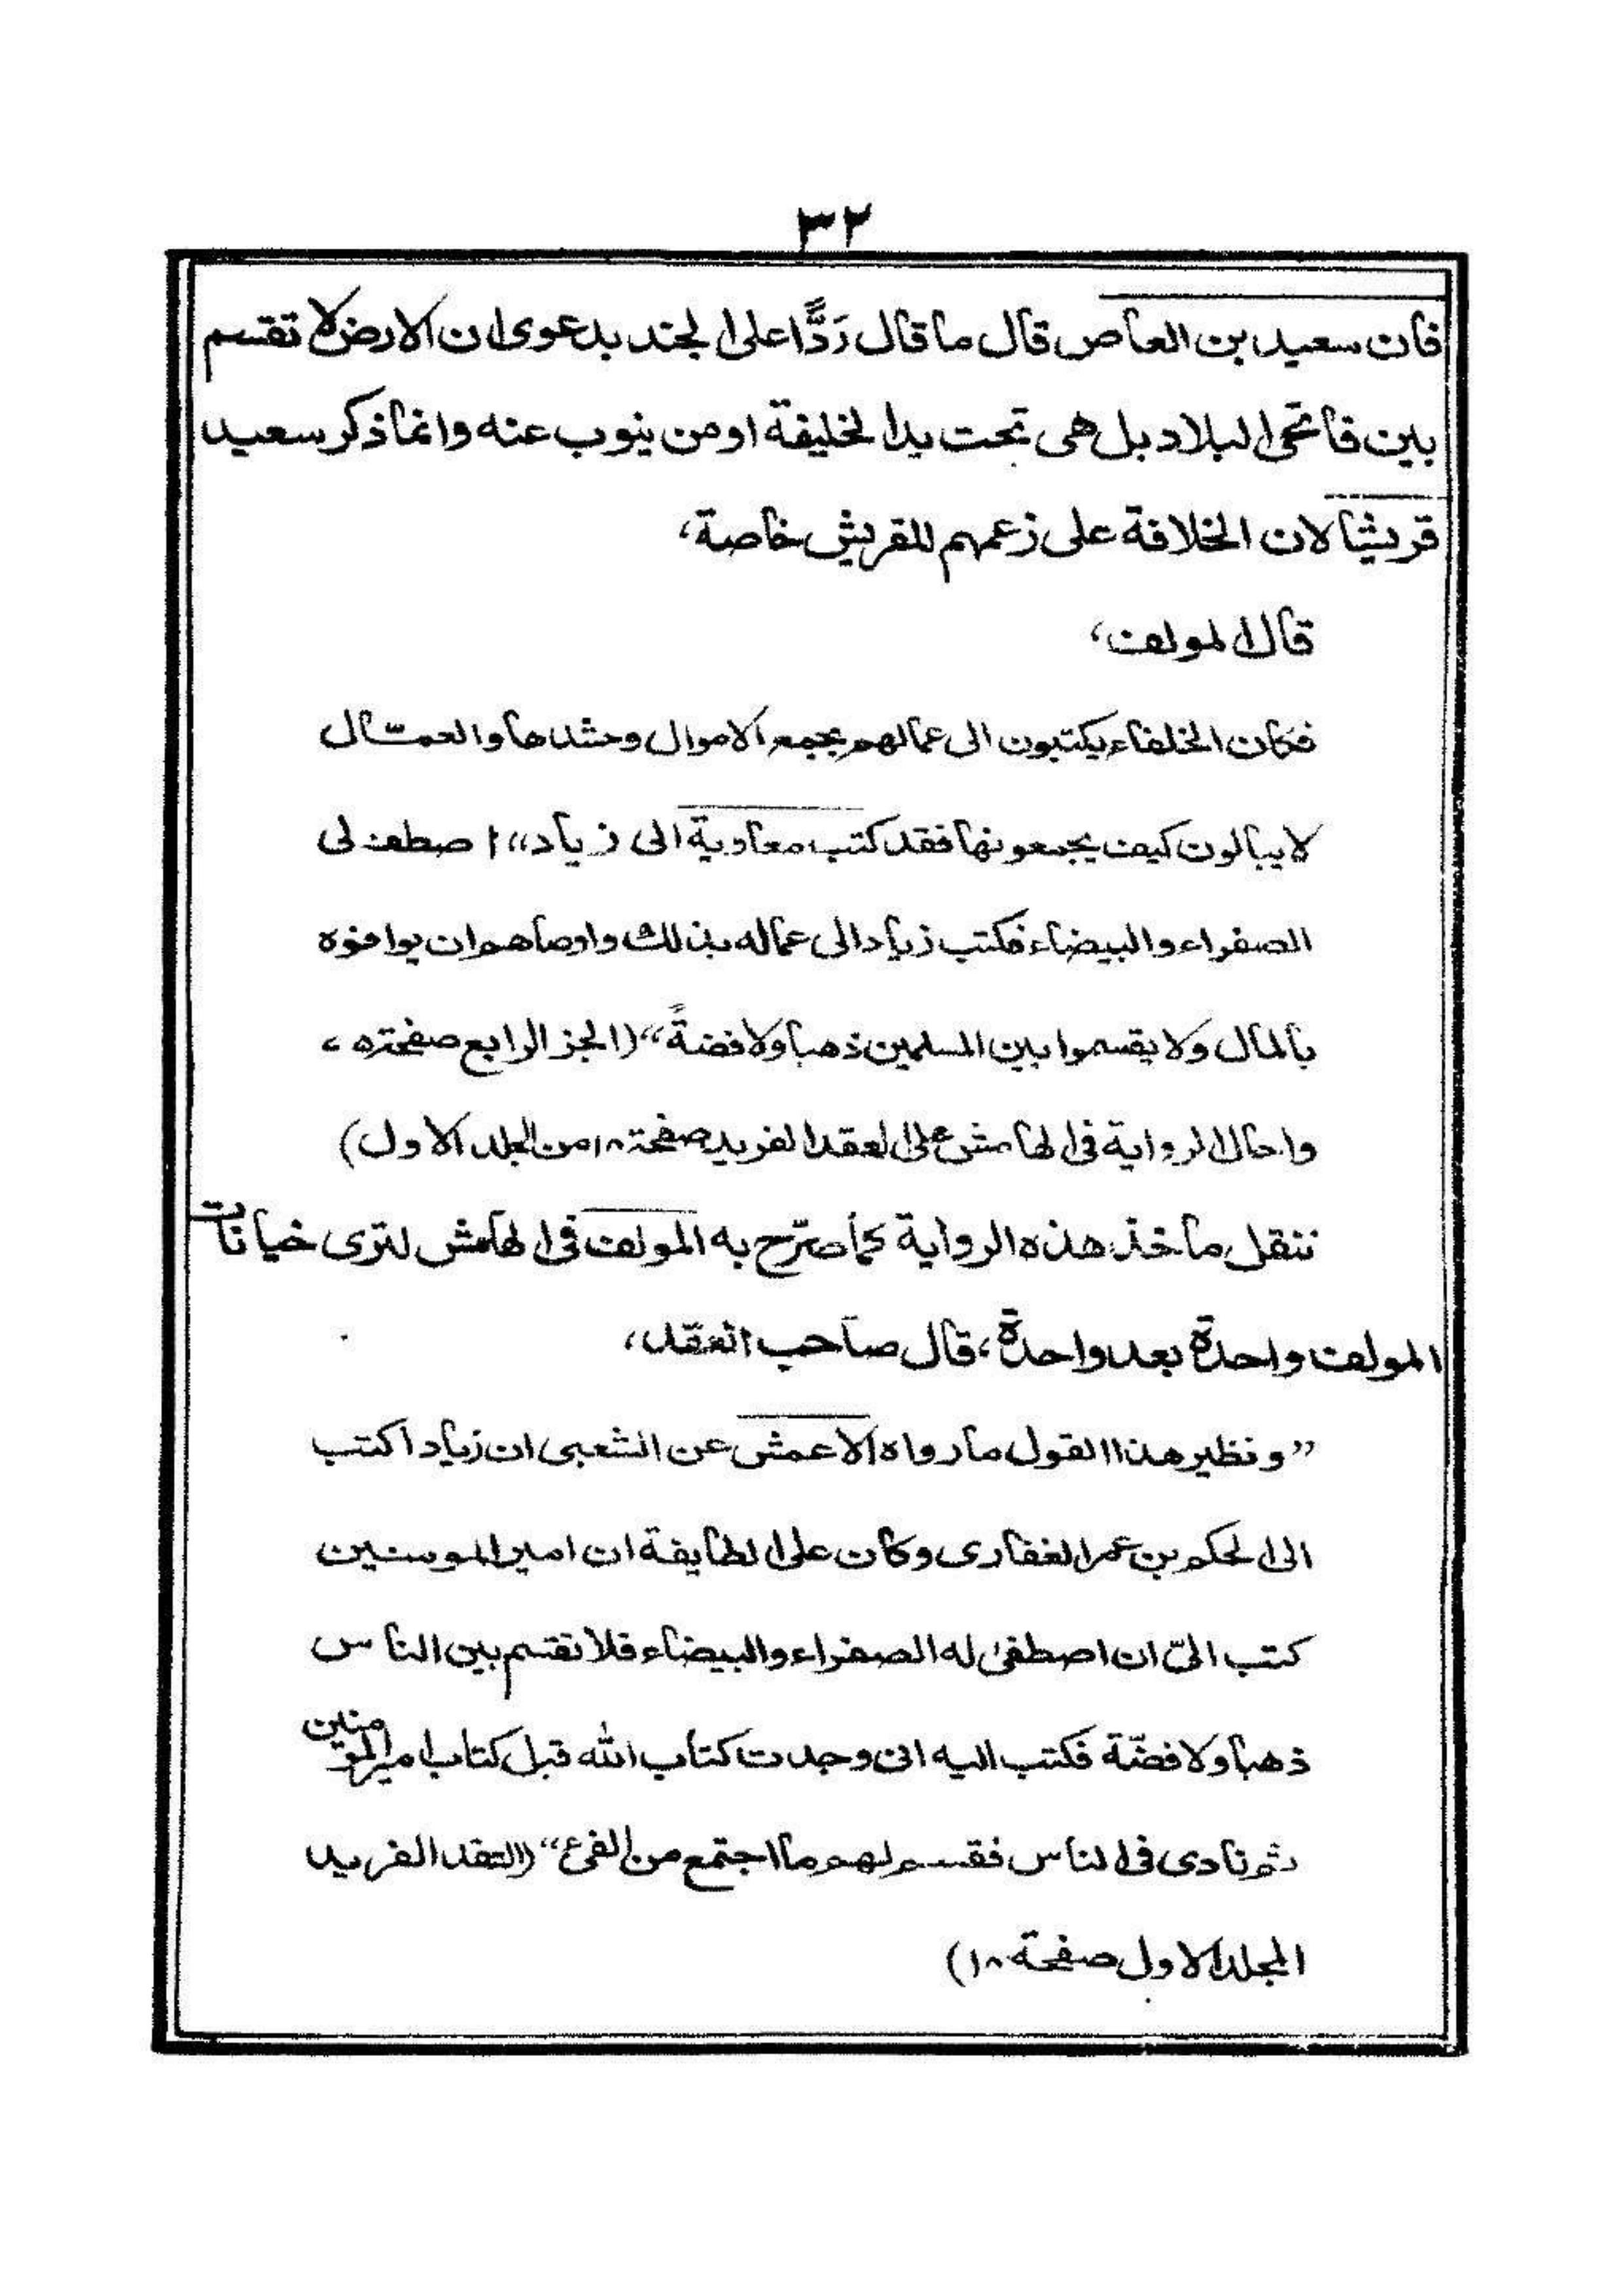 ٣٢
فان سعيد بن العاص قال ما قال رَدًّا على الجند بدعوى ان الارض لا تقسم
بين فاتحى البلاد بل هى تحت يد الخليفة او من ينوب عنه وانما ذكر سعيد
قريشا لان الخلافة على زعمهم للقريش خاصة،
قال المولف،
فكان الخلفاء يكتبون الى عمالهم بجمع الاموال وحشدها والعمّال
لا يبالون كيف يجمعونها فقد كتب معاوية الى زياد،، اصطف لى
الصفراء والبيضاء فكتب زياد الى عماله بذلك واوصاهم ان يوافوه
بالمال ولا يقسموا بين المسلمين ذهبا ولا فضةً“ (الجز الرابع صفحته
واحال الرواية فى الهامش على العقد الفريد صفحة ١٨ من المجلد الاول)
ننقل ماخذ هذه الرواية كما صرّح به المولف فى الهامش لترى خيانات
المولف واحدة بعد واحدة، قال صاحب العقد،
”ونظير هذا القول ما رواه الاعمش عن الشعبى ان زيادا كتب
الى الحكم بن عمر الغفارى وكان على الطايفة ان امير المومنين
كتب الىّ ان اصطفى له الصفراء والبيضاء فلا تقسم بين الناس
ذهبا ولا فضّة فكتب اليه انى وجدت كتاب الله قبل كتاب امير المومنين
ثم نادى فى الناس فقسم لهم ما اجتمع من الفئ“ (العقد الفريد
المجلد الاول صفحة ١٨)